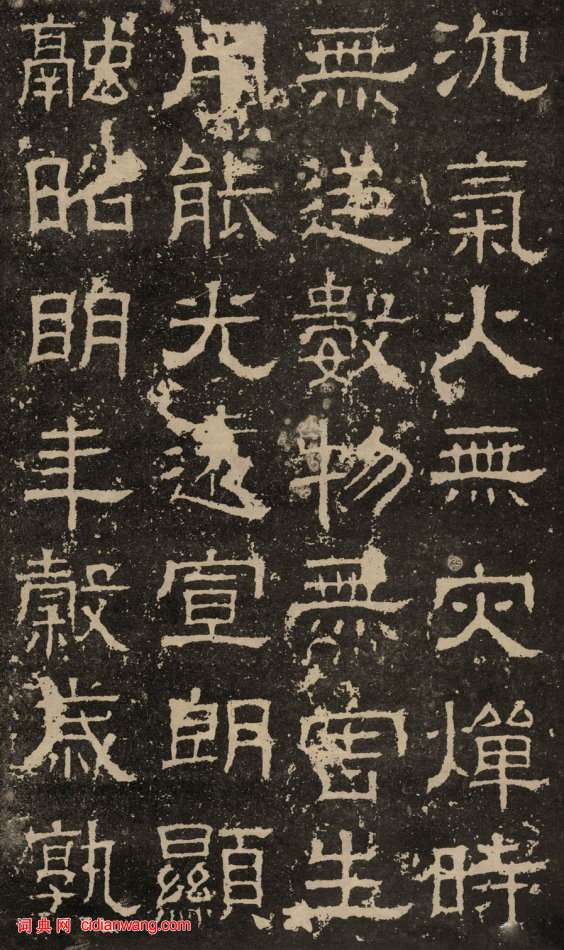 沉氣火無灾燀時
無逆數物無害生
用能光遠宣朗顯
融昭眀年穀歲孰
词典网 cidianwang.com